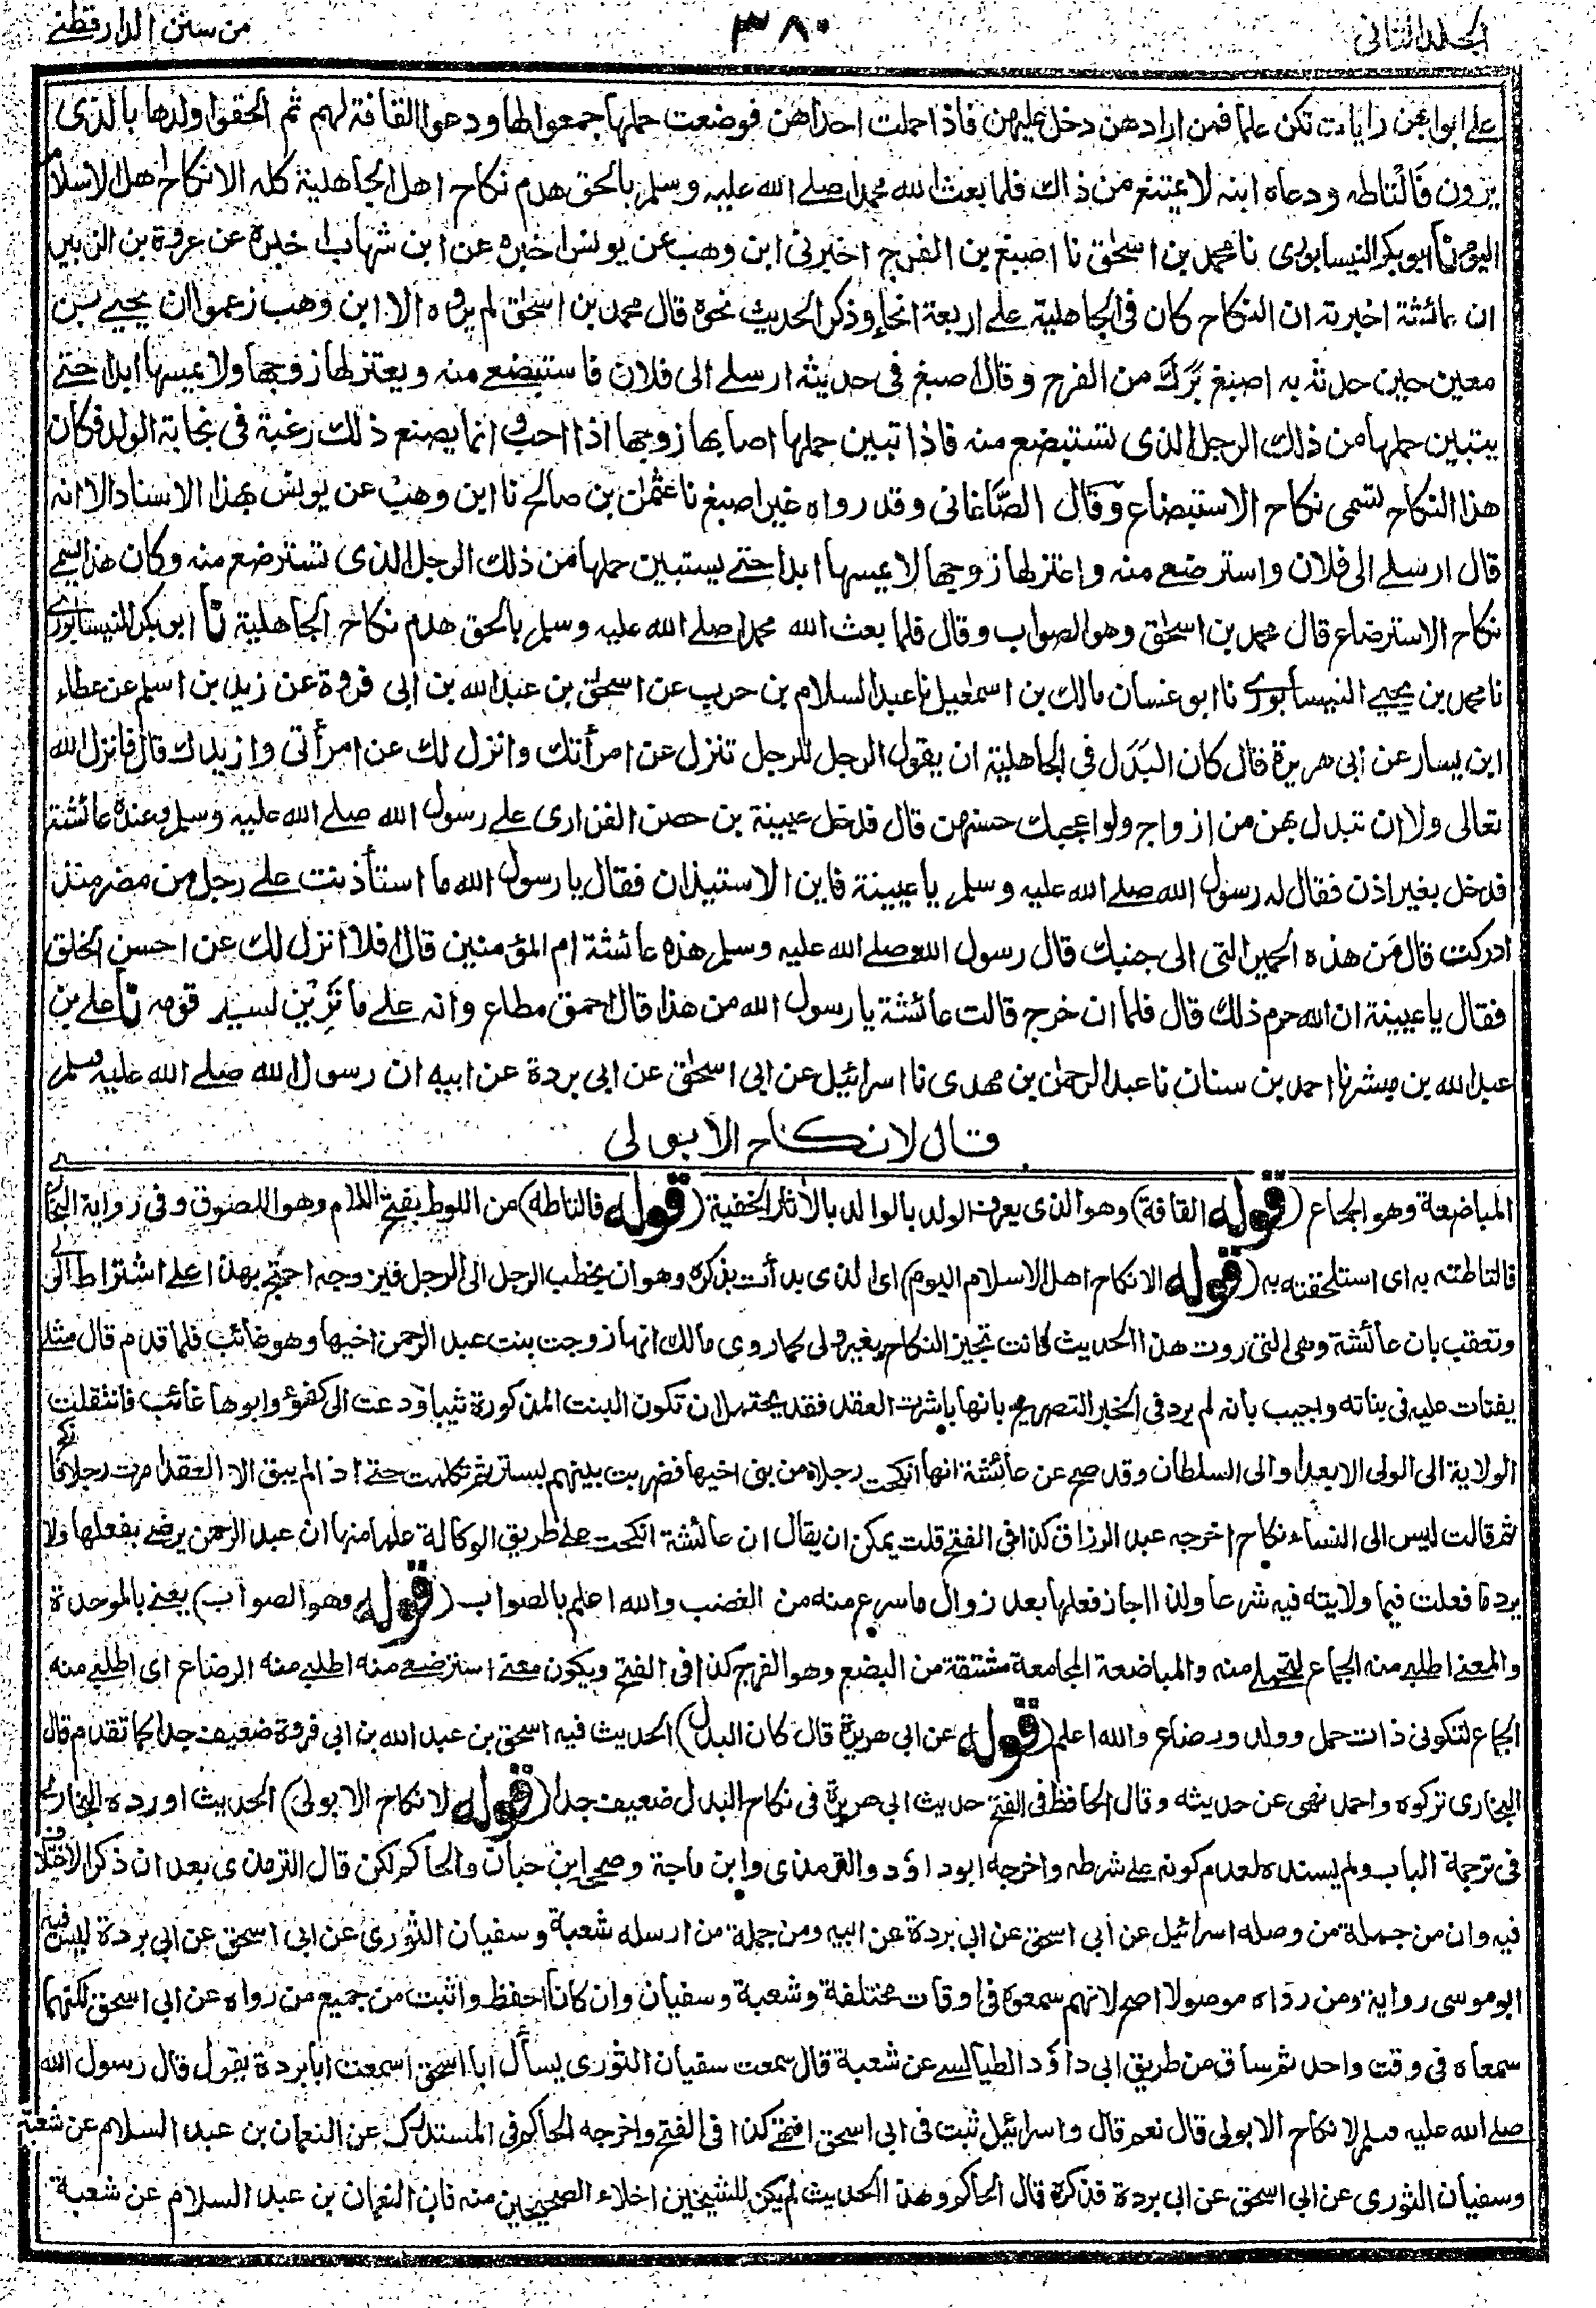 الجلد الثانی ٣٨٠ من سنن الدارقطنے
علے ابوابهن رايات تكن علما فمن ارادهن دخل عليهن فاذا حملت احداهن فوضعت حملها جمعوا لها ودعوا القافة لهم ثم الحقوا ولدها بالذى
يرون فالتاطه ودعاه ابنه لا يمتنع من ذاك فلما بعث الله محمدا صلے الله عليه وسلم بالحق هدم نكاح اهل الجاهلية كله الا نكاح اهل الاسلام
اليوم نا ابو بكر النيسابورى نا محمد بن اسحٰق نا اصبغ بن الفرج اخبرنى ابن وهب عن يونس اخبره عن ابن شهاب اخبره عن عروة بن الزبير
ان عائشة اخبرته ان النكاح كان فى الجاهلية علے اربعة انحاء وذكر الحديث نحوه قال محمد بن اسحٰق لم يروه الا ابن وهب زعموا ان يحيے بن
معين حين حدثه به اصبغ بَرَكَ من الفرح وقال اصبغ فى حديثه ارسلے الى فلان فاستبضعے منه ويعتزلها زوجها ولا يمسها ابدا حتے
يتبين حملها من ذلك الرجل الذى تستبضع منه فاذا تبين حملها اصابها زوجها اذا احب وانما يصنع ذلك رغبة فى نجابة الولد فكان
هذا النكاح يسمى نكاح الاستبضاع وقال الصَّاغانى وقد رواه غير اصبغ نا عثمٰن بن صالح نا ابن وهب عن يونس بهذا الاسناد الا انه
قال ارسلے الى فلان واسترضعے منه واعتزلها زوجها لا يمسها ابدا حتے يستبين حملها من ذلك الرجل الذى تسترضع منه وكان هذا يسمے
نكاح الاسترضاع قال محمد بن اسحٰق وهو الصواب وقال فلما بعث الله محمدا صلے الله عليه وسلم بالحق هدم نكاح الجاهلية نا ابو بكر النيسابورے
نا محمد بن يحيے النيسابورے نا ابو غسان مالك بن اسمٰعيل نا عبد السلام بن حرب عن اسحٰق بن عبد الله بن ابى فروة عن زيد بن اسلم عن عطاء
ابن يسار عن ابى هريرة قال كان البَدَل فى الجاهلية ان يقول الرجل للرجل تنزل عن امرأتك وانزل لك عن امرأتى وازيدك قال فانزل الله
تعالى ولا ان تبدل بهن من ازواج ولو اعجبك حسنهن قال فدخل عيينة بن حصن الفزارى علے رسول الله صلے الله عليه وسلم وعنده عائشة
فدخل بغير اذن فقال له رسول الله صلے الله عليه وسلم يا عيينة فاين الاستيذان فقال يا رسول الله ما استأذنت علے رجل من مضر منذ
ادركت قال مَن هذه الحميراء التى الى جنبك قال رسول الله صلے الله عليه وسلم هذه عائشة ام المؤمنين قال افلا انزل لك عن احسن الخلق
فقال يا عيينة ان الله حرم ذلك قال فلما ان خرج قالت عائشة يا رسول الله من هذا قال احمق مطاع وانه علے ما تَرَيْن لسيد قومه نا علے بن
عبد الله بن مبشر نا احمد بن سنان نا عبد الرحمٰن بن مهدى نا اسرائيل عن ابى اسحٰق عن ابى بردة عن ابيه ان رسول الله صلے الله عليه وسلم
قال لا نكاح الا بولى
المباضعة وهو الجماع (قوله القافة) وهو الذى يعرف الولد بالوالد بالأثار الخفية (قوله فالتاطه) من اللوط بفتح اللام وهو اللصوق وفى رواية البخارے
فالتاطته به اى استلحقته به (قوله الا نكاح اهل الاسلام اليوم) اى الذى بدأت بذكره وهو ان يخطب الرجل الى الرجل فيزوجه احتج بهذا علے اشتراط الولى
وتعقب بان عائشة وهى التى روت هذا الحديث كانت تجيز النكاح بغير ولى كما روى مالك انها زوجت بنت عبد الرحمن اخيها وهو غائب فلما قدم قال مثلى
يفتات عليه فى بناته واجيب بانه لم يرد فى الخبر التصريح بانها باشرت العقد فقد يحتمل ان تكون البنت المذكورة ثيبا ودعت الى كفؤ وابوها غائب فانتقلت
الولاية الى الولى الابعد او الى السلطان وقد صح عن عائشة انها انكحت رجلا من بنى اخيها فضربت بينهم بستر ثم تكلمت حتے اذا لم يبق الا العقد امرت رجلا فانكح
ثم قالت ليس الى النساء نكاح اخرجه عبد الرزاق كذا فى الفتح قلت يمكن ان يقال ان عائشة انكحت على طريق الوكالة علما منها ان عبد الرحمن يرضے بفعلها ولا
يرد ما فعلت فيما ولايته فيه شرعا ولذا اجاز فعلها بعد زوال ما سرع منه من الغضب والله اعلم بالصواب (قوله وهو الصواب) يعنے بالموحدة
والمعنے اطلبے منه الجماع لتحملے منه والمباضعة المجامعة مشتقة من البضع وهو الفرج كذا فى الفتح ويكون معنے استرضعے منه اطلبے منه الرضاع اى اطلبے منه
الجماع لتكونى ذات حمل وولد ورضاع والله اعلم (قوله عن ابى هريرة قال كان البدل) الحديث فيه اسحٰق بن عبد الله بن ابى فروة ضعيف جدا كما تقدم قال
البخارى تركوه واحمد نهى عن حديثه وقال الحافظ فى الفتح حديث ابى هريرة فى نكاح البدل ضعيف جدا (قوله لا نكاح الا بولى) الحديث اورده البخارى
فى ترجمة الباب ولم يسنده لعدم كونه علے شرطه واخرجه ابو داؤد والترمذى وابن ماجة وصححه ابن حبان والحاكم لكن قال الترمذى بعد ان ذكر الاختلاف
فيه وان من جملة من وصله اسرائيل عن ابى اسحق عن ابى بردة عن ابيه ومن جملة من ارسله شعبة وسفيان الثورى عن ابى اسحق عن ابى بردة ليس فيه
ابو موسى رواية ومن رواه موصولا اصح لانهم سمعوه فى اوقات مختلفة وشعبة وسفيان وان كانا احفظ واثبت من جميع من رواه عن ابى اسحق لكنهما
سمعاه فى وقت واحد ثم ساق من طريق ابى داؤد الطيالسے عن شعبة قال سمعت سفيان الثورى يسأل ابا اسحق اسمعت ابا بردة يقول قال رسول الله
صلے الله عليه وسلم لا نكاح الا بولى قال نعم قال واسرائيل ثبت فى ابى اسحق انتهے كذا فى الفتح واخرجه الحاكم فى المستدرك عن النعمان بن عبد السلام عن شعبة
وسفيان الثورى عن ابى اسحق عن ابى بردة فذكره قال الحاكم وهذا الحديث لم يكن للشيخين اخلاء الصحيحين منه فان النعمان بن عبد السلام عن شعبة